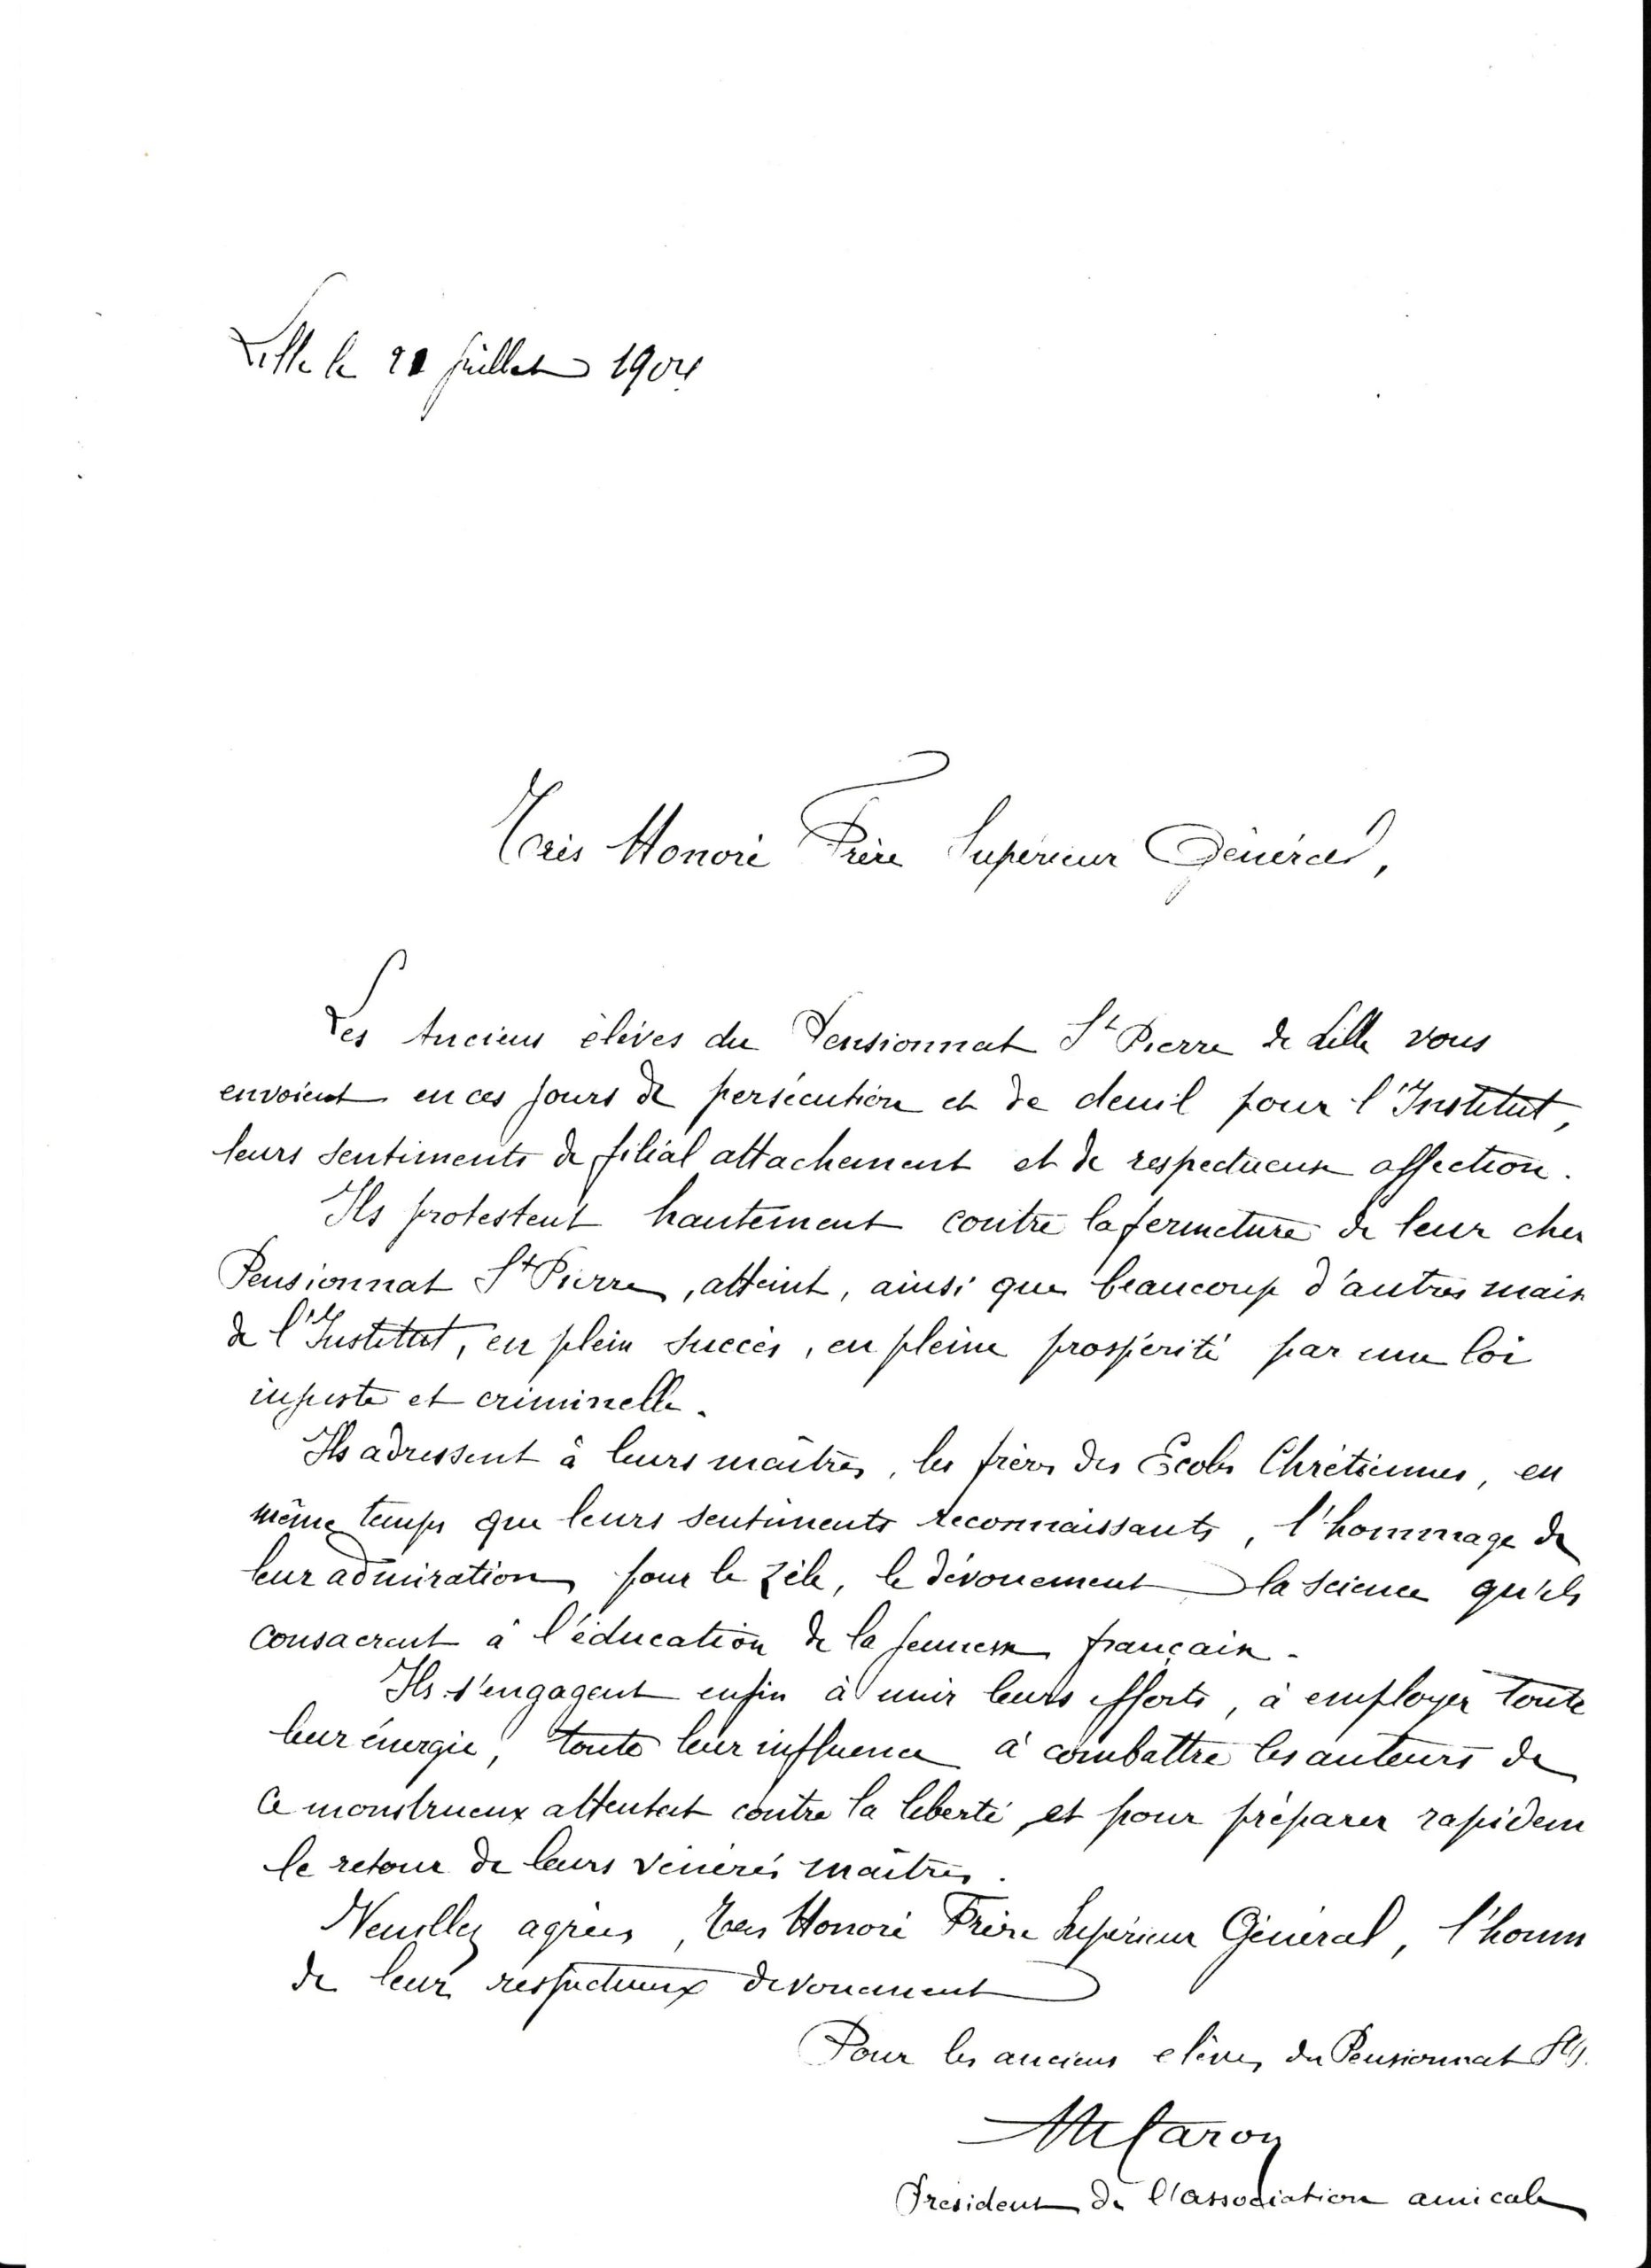 Lille le 20 juillet 1904
Très Honoré Frère Supérieur Général,
Les Anciens élèves du Pensionnat St Pierre de Lille vous
envoient en ces jours de persécution et de deuil pour l'Institut,
leurs sentiments de filial attachement et de respectueuse affection.
Ils protestent hautement contre la fermeture de leur cher
Pensionnat St Pierre, atteint, ainsi que beaucoup d'autres mais
de l'Institut, en plein succès, en pleine prospérité par une loi
injuste et criminelle.
Ils adressent à leurs maîtres, les frères des Ecoles Chrétiennes, en
même temps que leurs sentiments reconnaissants, l'hommage de
leur admiration pour le zèle, le dévouement la science qu'ils
consacrent à l'éducation de la jeunesse française.
Ils s'engagent enfin à unir leurs efforts, à employer toute
leur énergie, toute leur influence à combattre les auteurs de
ce monstrueux attentat contre la liberté, et pour préparer rapidem
le retour de leurs vénérés maîtres.
Veuillez agréer, Très Honoré Frère Supérieur Général, l'homm
de leur respectueux dévouement
Pour les anciens élèves du Pensionnat
Caron
Président de l'association amicale